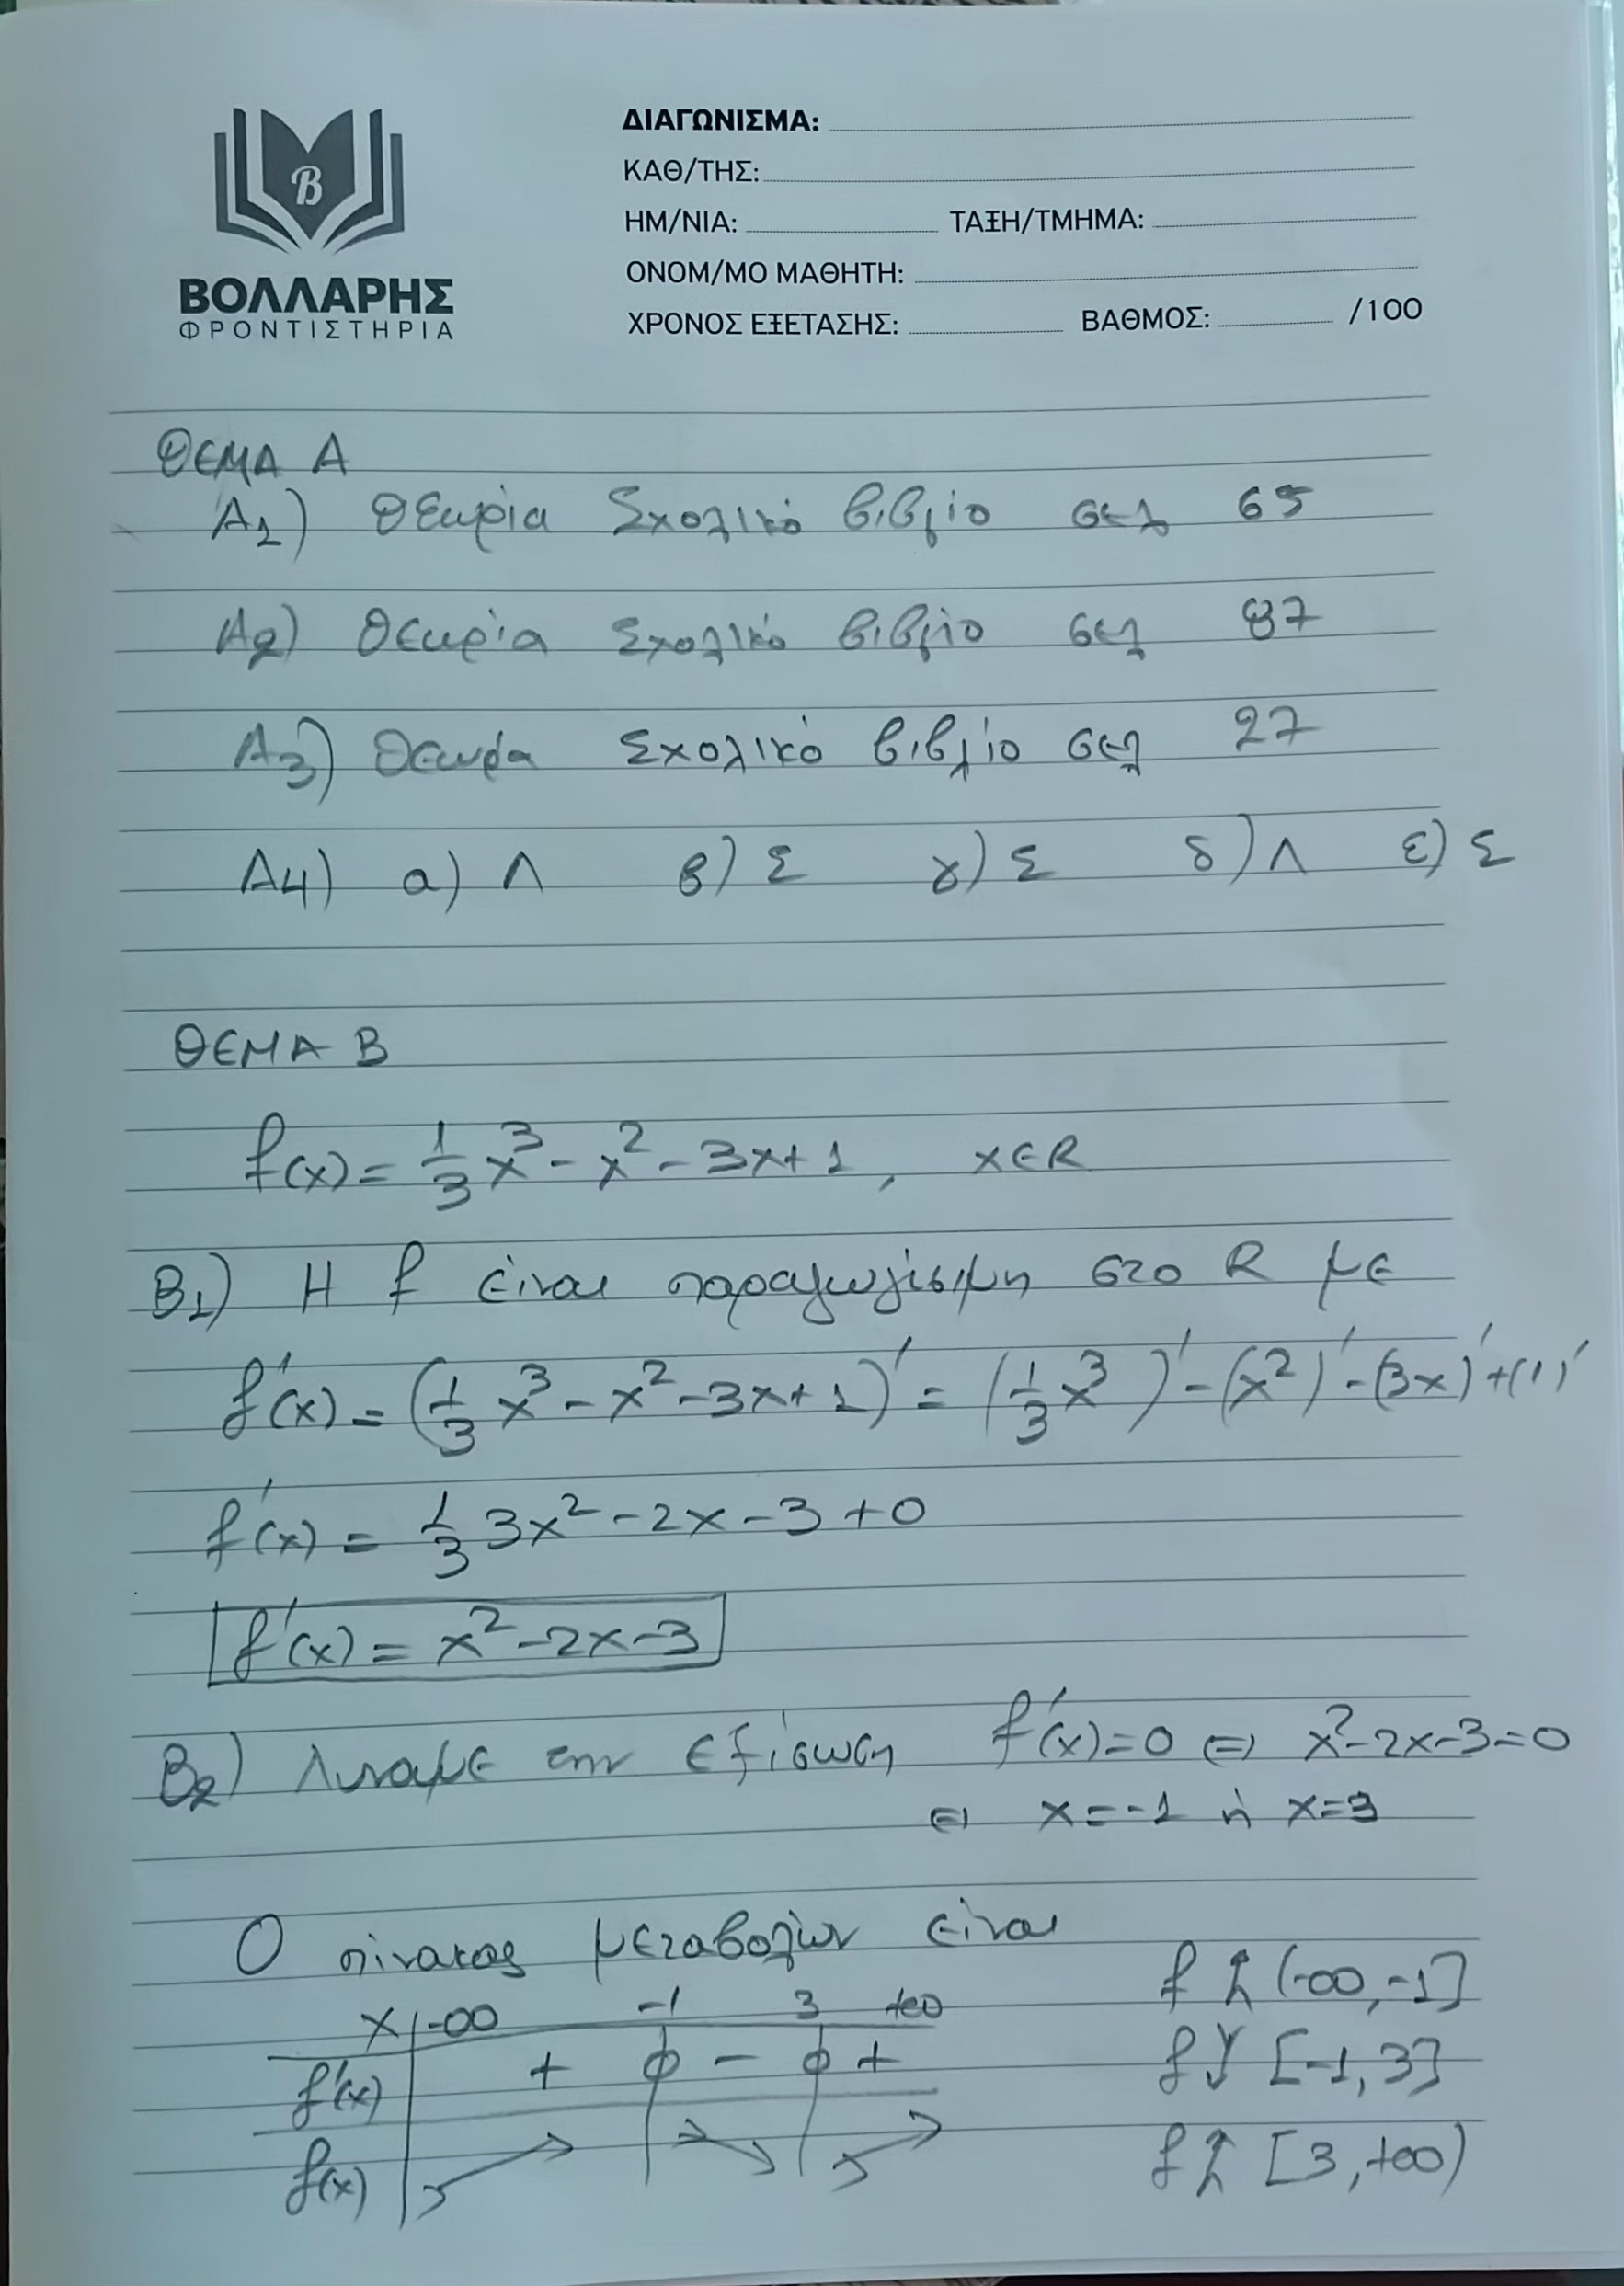 ΒΟΛΛΑΡΗΣ
ΦΡΟΝΤΙΣΤΗΡΙΑ
ΔΙΑΓΩΝΙΣΜΑ:
ΚΑΘ/ΤΗΣ:
ΗΜ/ΝΙΑ: ΤΑΞΗ/ΤΜΗΜΑ:
ΟΝΟΜ/ΜΟ ΜΑΘΗΤΗ:
ΧΡΟΝΟΣ ΕΞΕΤΑΣΗΣ: ΒΑΘΜΟΣ: /100
ΘΕΜΑ Α
Α1) Θεωρία Σχολικό βιβλίο σελ 65
Α2) Θεωρία Σχολικό βιβλίο σελ 87
Α3) Θεωρία Σχολικό βιβλίο σελ 27
Α4) α) Λ β) Σ γ) Σ δ) Λ ε) Σ
ΘΕΜΑ Β
f(x) = 1/3 x³ - x² - 3x + 1, x∈R
Β1) Η f είναι παραγωγίσιμη στο R με
f'(x) = (1/3 x³ - x² - 3x + 1)' = (1/3 x³)' - (x²)' - (3x)' + (1)'
f'(x) = 1/3 3x² - 2x - 3 + 0
f'(x) = x² - 2x - 3
Β2) Λύναμε την εξίσωση f'(x) = 0 ⇔ x² - 2x - 3 = 0
⇔ x = -1 ή x = 3
Ο πίνακας μεταβολών είναι
x -∞ -1 3 +∞
f'(x) + 0 - 0 +
f(x) ↗ ↘ ↗
f ↑ (-∞, -1]
f ↓ [-1, 3]
f ↑ [3, +∞)